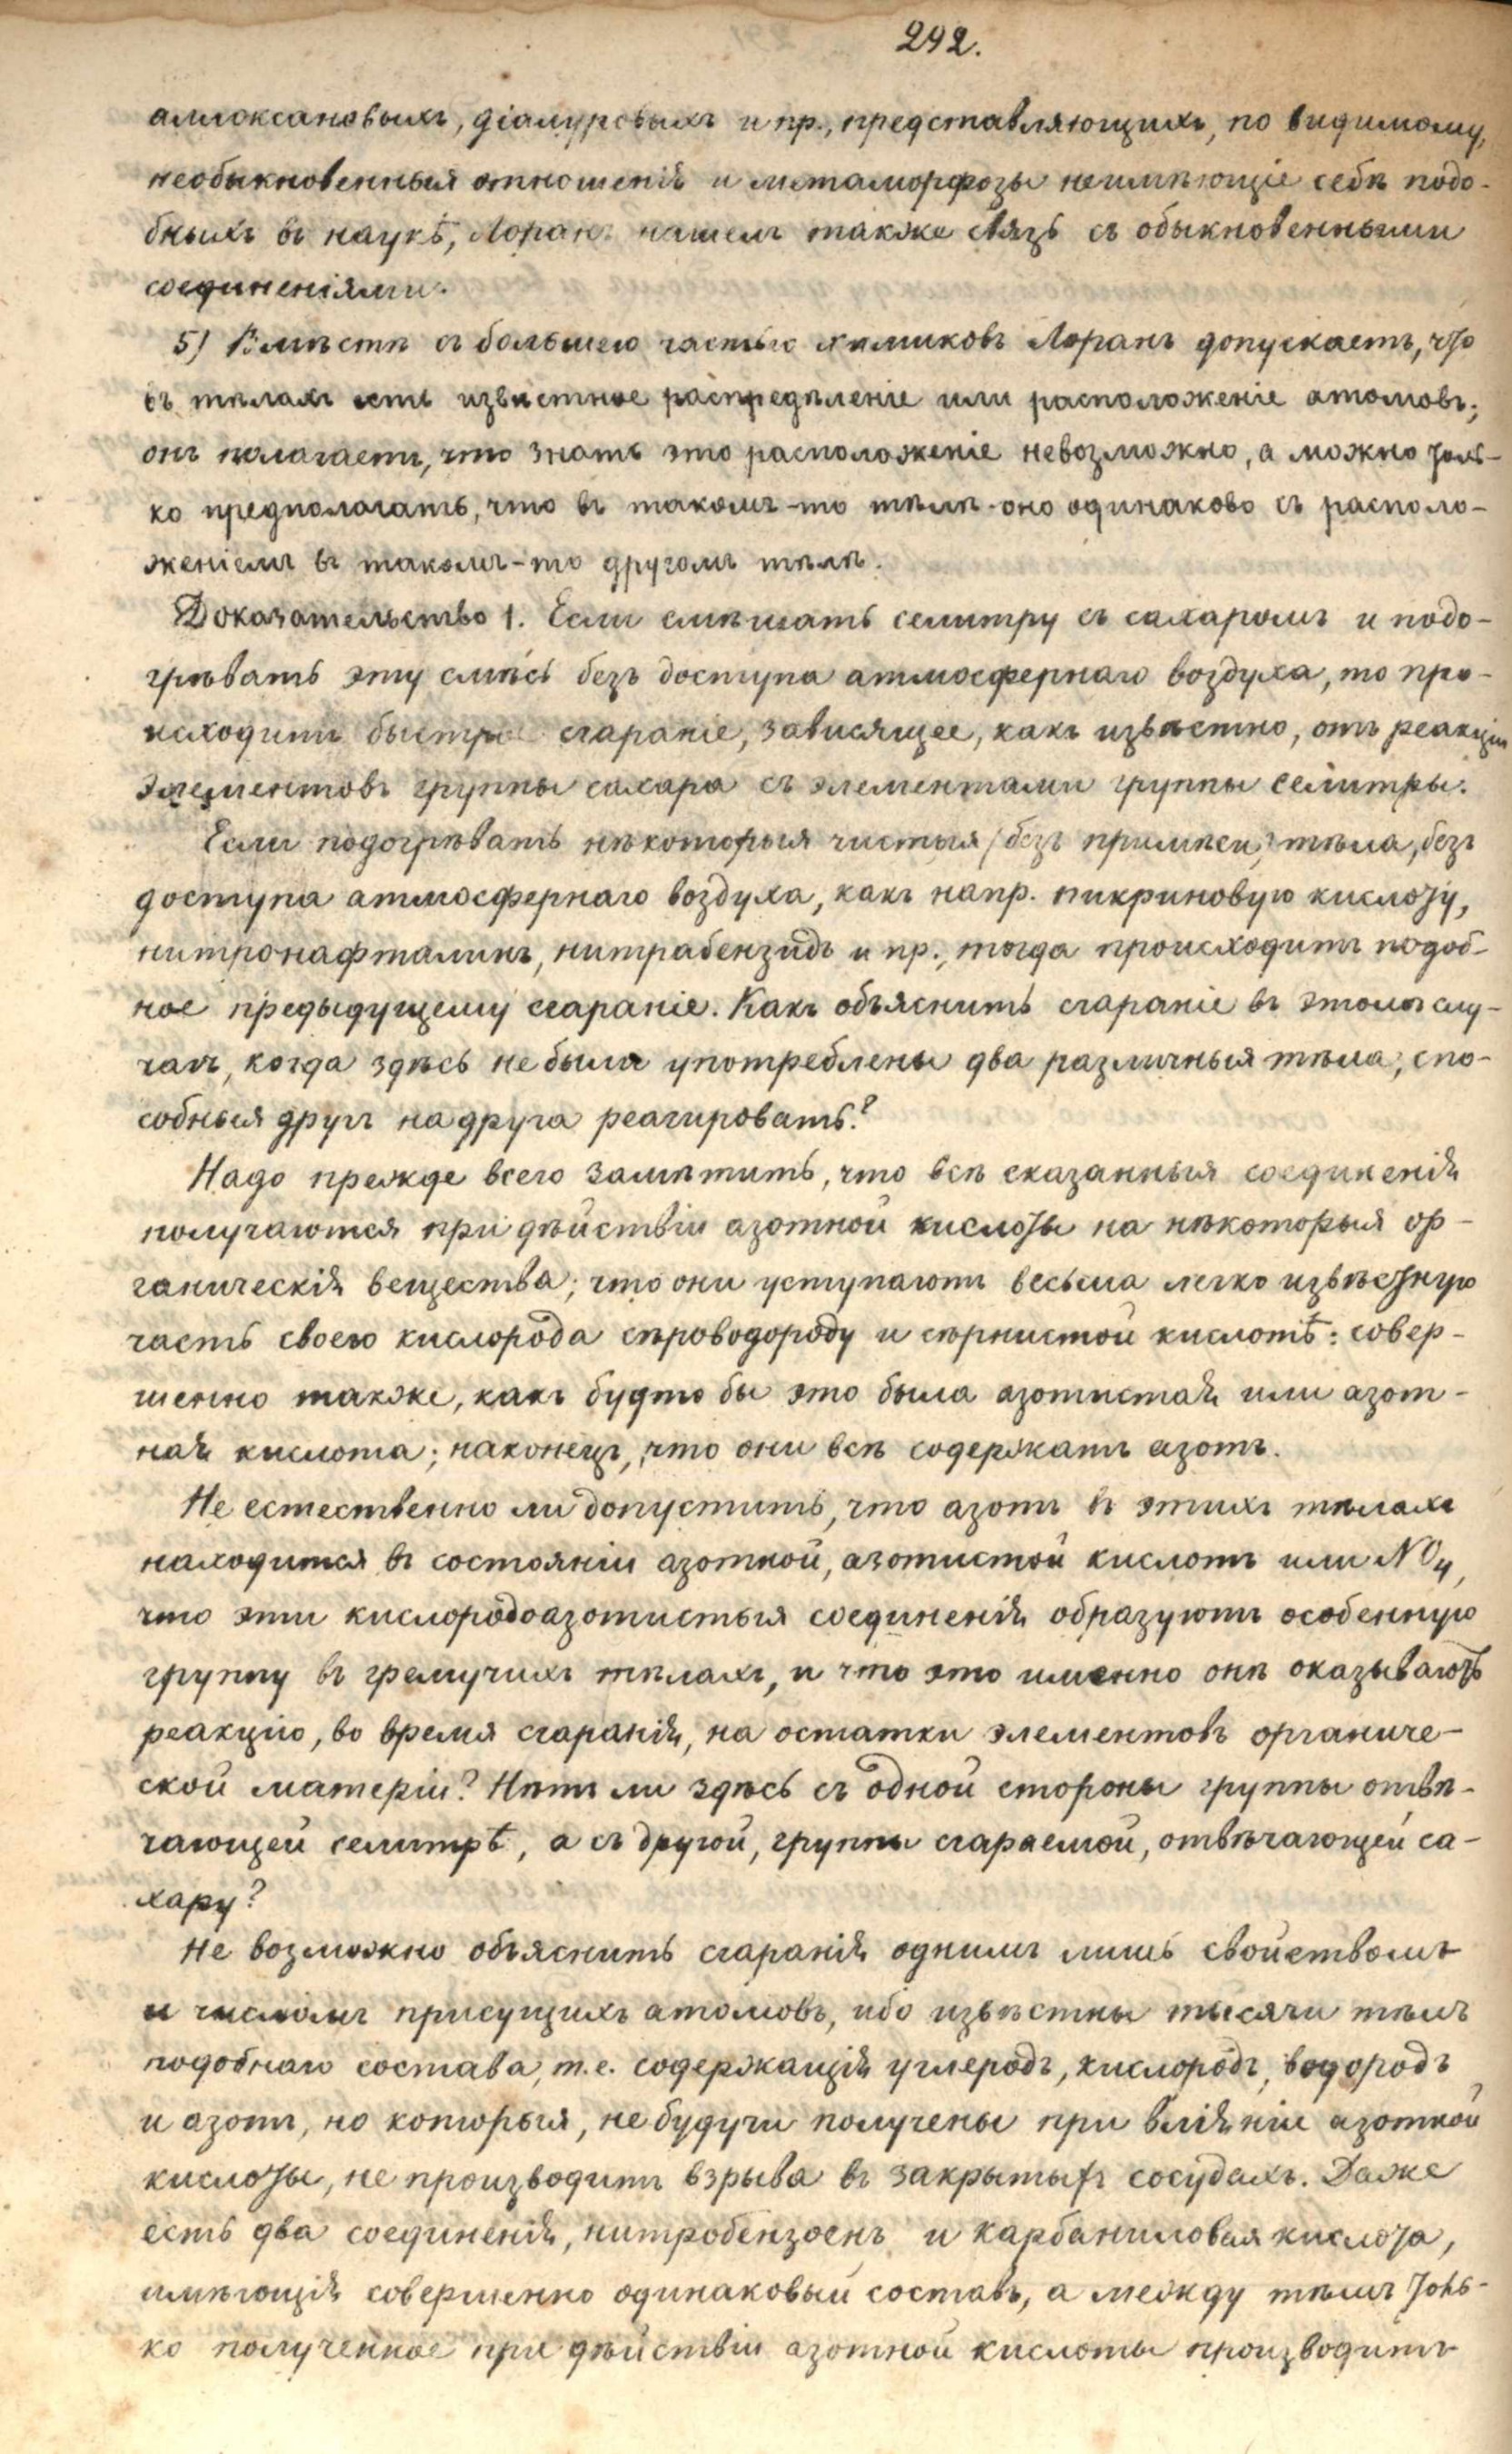 292.
аллоксановыхъ, діалуровыхъ и пр., представляющихъ, по видимому,
необыкновенныя отношенія и метаморфозы неимѣющіе себѣ подо-
бныхъ въ наукѣ, Лоранъ нашелъ также связь съ обыкновенными
соединеніями.
5) Вмѣстѣ съ большею частью химиковъ Лоранъ допускаетъ, что
въ тѣлахъ есть извѣстное распредѣленіе или расположеніе атомовъ;
онъ полагаетъ, что знать это расположеніе невозможно, а можно толь-
ко предполагать, что въ такомъ-то тѣлѣ оно одинаково съ располо-
женіемъ въ такомъ-то другомъ тѣлѣ.
Доказательство 1. Если смѣшать селитру съ сахаромъ и подо-
грѣвать эту смѣсь безъ доступа атмосфернаго воздуха, то про-
исходитъ быстрое сгараніе, зависящее, какъ извѣстно, отъ реакціи
элементовъ группы сахара съ элементами группы селитры.
Если подогрѣвать нѣкоторыя чистыя (безъ примѣси) тѣла, безъ
доступа атмосфернаго воздуха, какъ напр. пикриновую кислоту,
нитронафталинъ, нитрабензидъ и пр., тогда происходитъ подоб-
ное предыдущему сгараніе. Какъ объяснить сгараніе въ этомъ слу-
чаѣ, когда здѣсь не были употреблены два различныя тѣла, спо-
собныя другъ на друга реагировать?
Надо прежде всего замѣтить, что всѣ сказанныя соединенія
получаются при дѣйствіи азотной кислоты на нѣкоторыя ор-
ганическія вещества; что они уступаютъ весьма легко извѣстную
часть своего кислорода сѣроводороду и сѣрнистой кислотѣ: совер-
шенно также, какъ будто бы это была азотистая или азот-
ная кислота; наконецъ, что они всѣ содержатъ азотъ.
Не естественно ли допустить, что азотъ въ этихъ тѣлахъ
находится въ состояніи азотной, азотистой кислотъ или NO₄,
что эти кислородоазотистыя соединенія образуютъ особенную
группу въ гремучихъ тѣлахъ, и что это именно онѣ оказываютъ
реакцію, во время сгаранія, на остатки элементовъ органиче-
ской матеріи? Нѣтъ ли здѣсь съ одной стороны группы отвѣ-
чающей селитрѣ, а съ другой, группы сгараемой, отвѣчающей са-
хару?
Не возможно объяснить сгаранія однимъ лишь свойствомъ
и числомъ присущихъ атомовъ, ибо извѣстны тысячи тѣлъ
подобнаго состава, т.е. содержащія углеродъ, кислородъ, водородъ
и азотъ, но которыя, не будучи получены при вліяніи азотной
кислоты, не производитъ взрыва въ закрытыхъ сосудахъ. Даже
есть два соединенія, нитробензоенъ и карбаниловая кислота,
имѣющія совершенно одинаковый составъ, а между тѣмъ толь-
ко полученное при дѣйствіи азотной кислоты производитъ